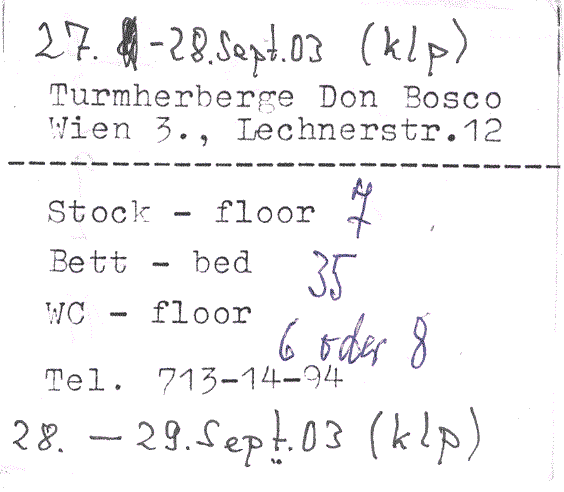 27. -28.Sept.03 (klp)
Turmherberge Don Bosco
Wien 3., Lechnerstr.12
Stock - floor 7
Bett - bed 35
WC - floor 6 oder 8
Tel. 713-14-94
28. - 29.Sept.03 (klp)